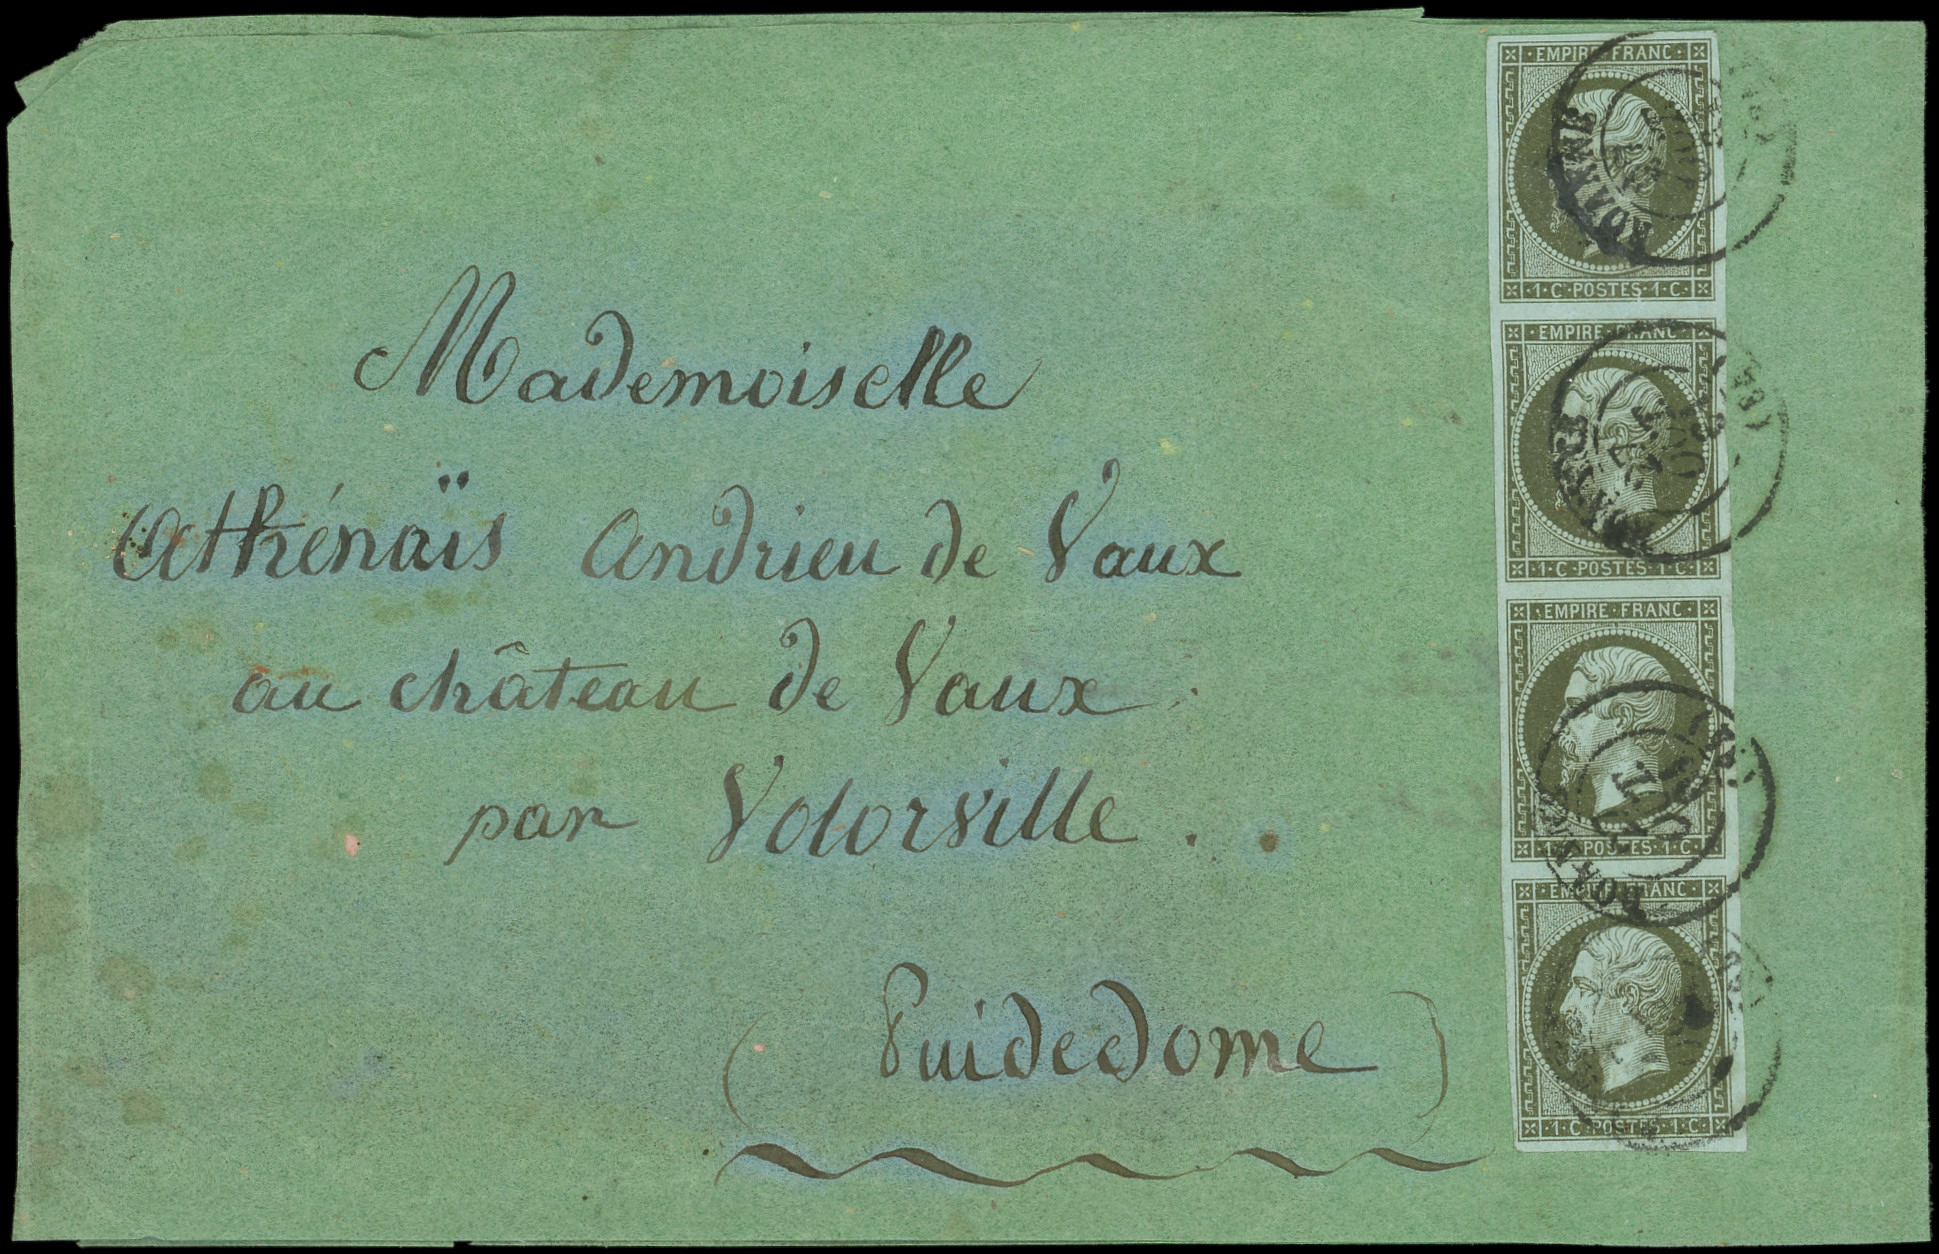 Mademoiselle
Athénaïs Andrieu de Vaux
au château de Vaux
par Volorville.
(Puidedome)
EMPIRE·FRANC·
·1·C·POSTES·1·C·
EMPIRE·FRANC·
·1·C·POSTES·1·C·
EMPIRE·FRANC·
·1·C·POSTES·1·C·
EMPIRE·FRANC·
·1·C·POSTES·1·C·
ROANNE